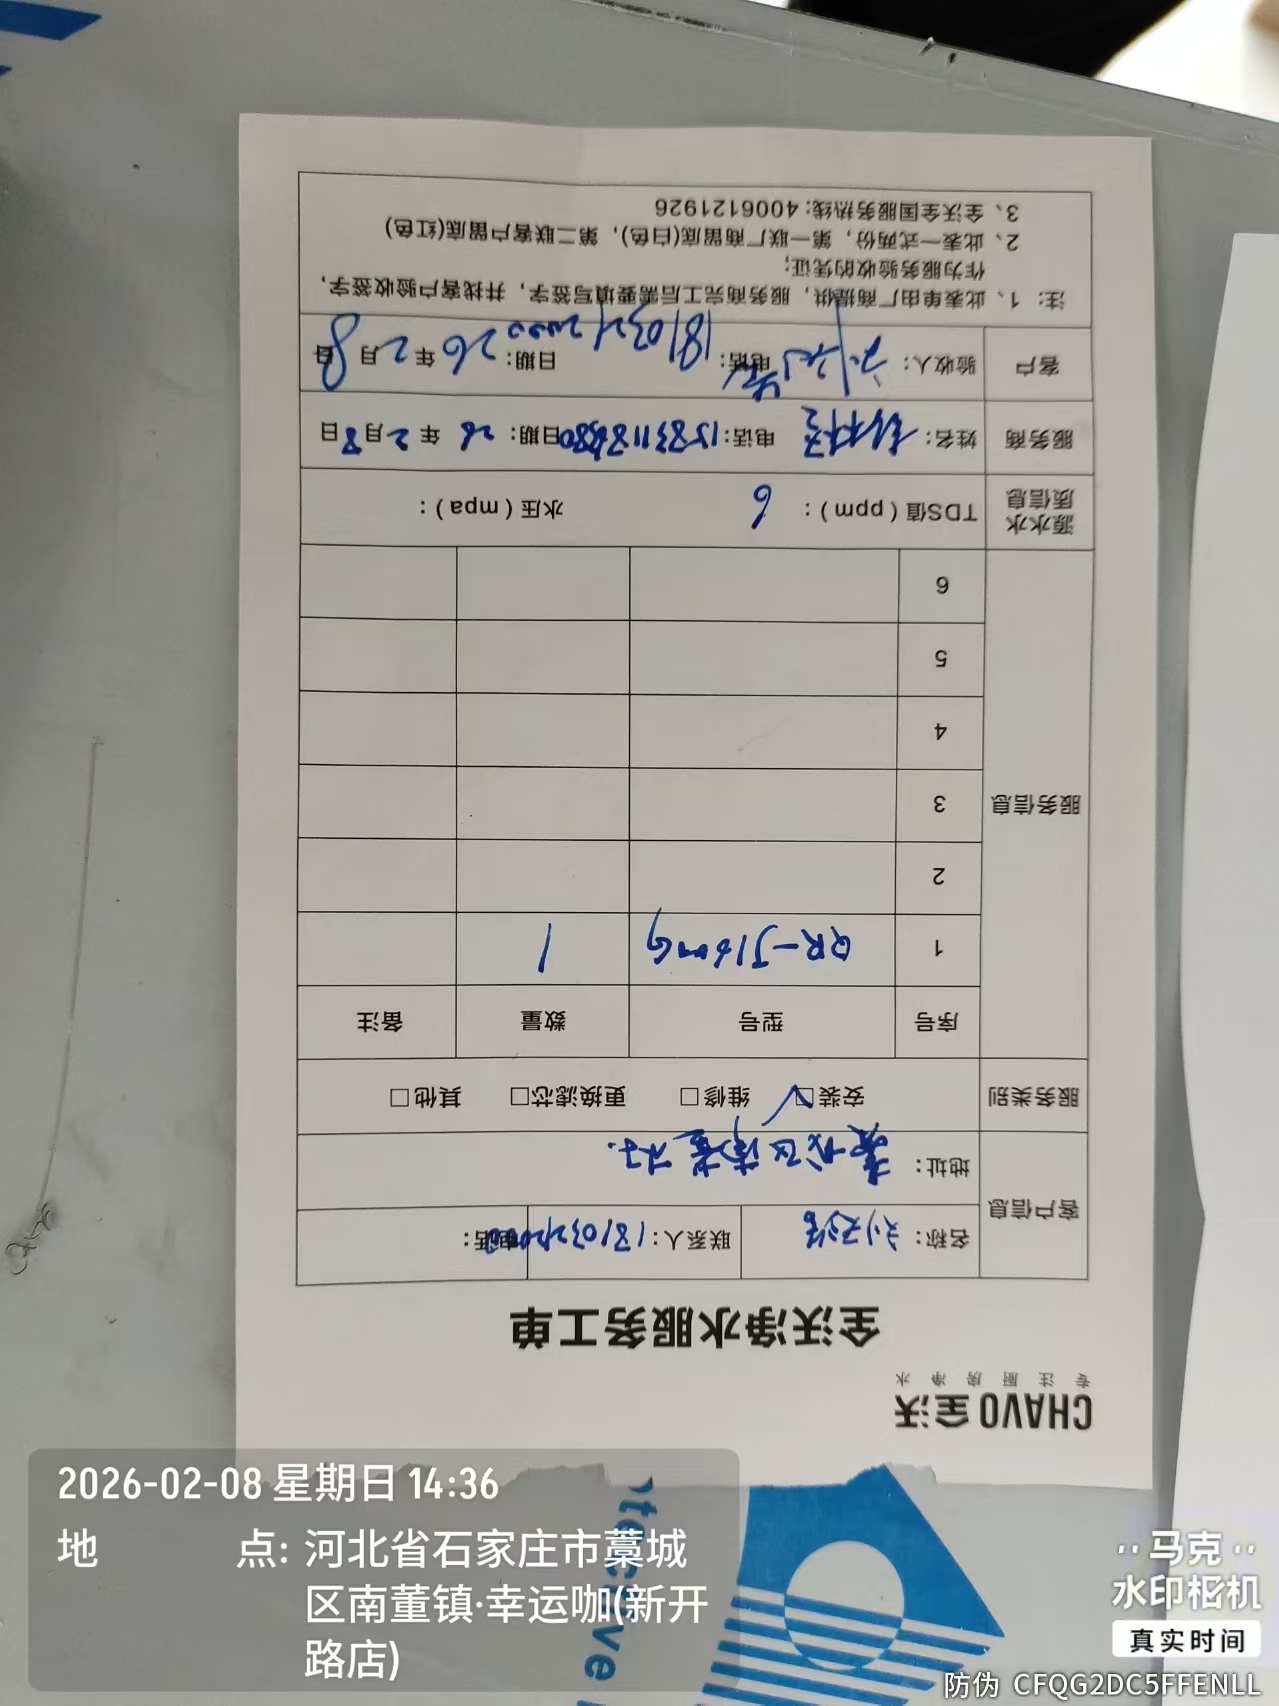 CHAVO 全沃
专注厨房净水
全沃净水服务工单
客户信息
名称： 联系人：18103212000 电话：
地址：
服务类别 安装☑ 维修□ 更换滤芯□ 其他□
服务信息
序号 型号 数量 备注
1 1
2
3
4
5
6
源水水质信息 TDS值（ppm）： 6 水压（mpa）：
服务商 姓名： 电话： 日期：26年2月8日
客户 验收人： 电话：18103212000 日期：26年2月8日
注：1、此表单由厂商提供，服务商完工后需要填写签字，并找客户验收签字，
作为服务验收的凭证；
2、此表一式两份，第一联厂商留底(白色)，第二联客户留底(红色)
3、全沃全国服务热线：4006121926
2026-02-08 星期日 14:36
地 点：河北省石家庄市藁城
区南董镇·幸运咖(新开
路店)
马克
水印相机
真实时间
防伪 CFQG2DC5FFENLL